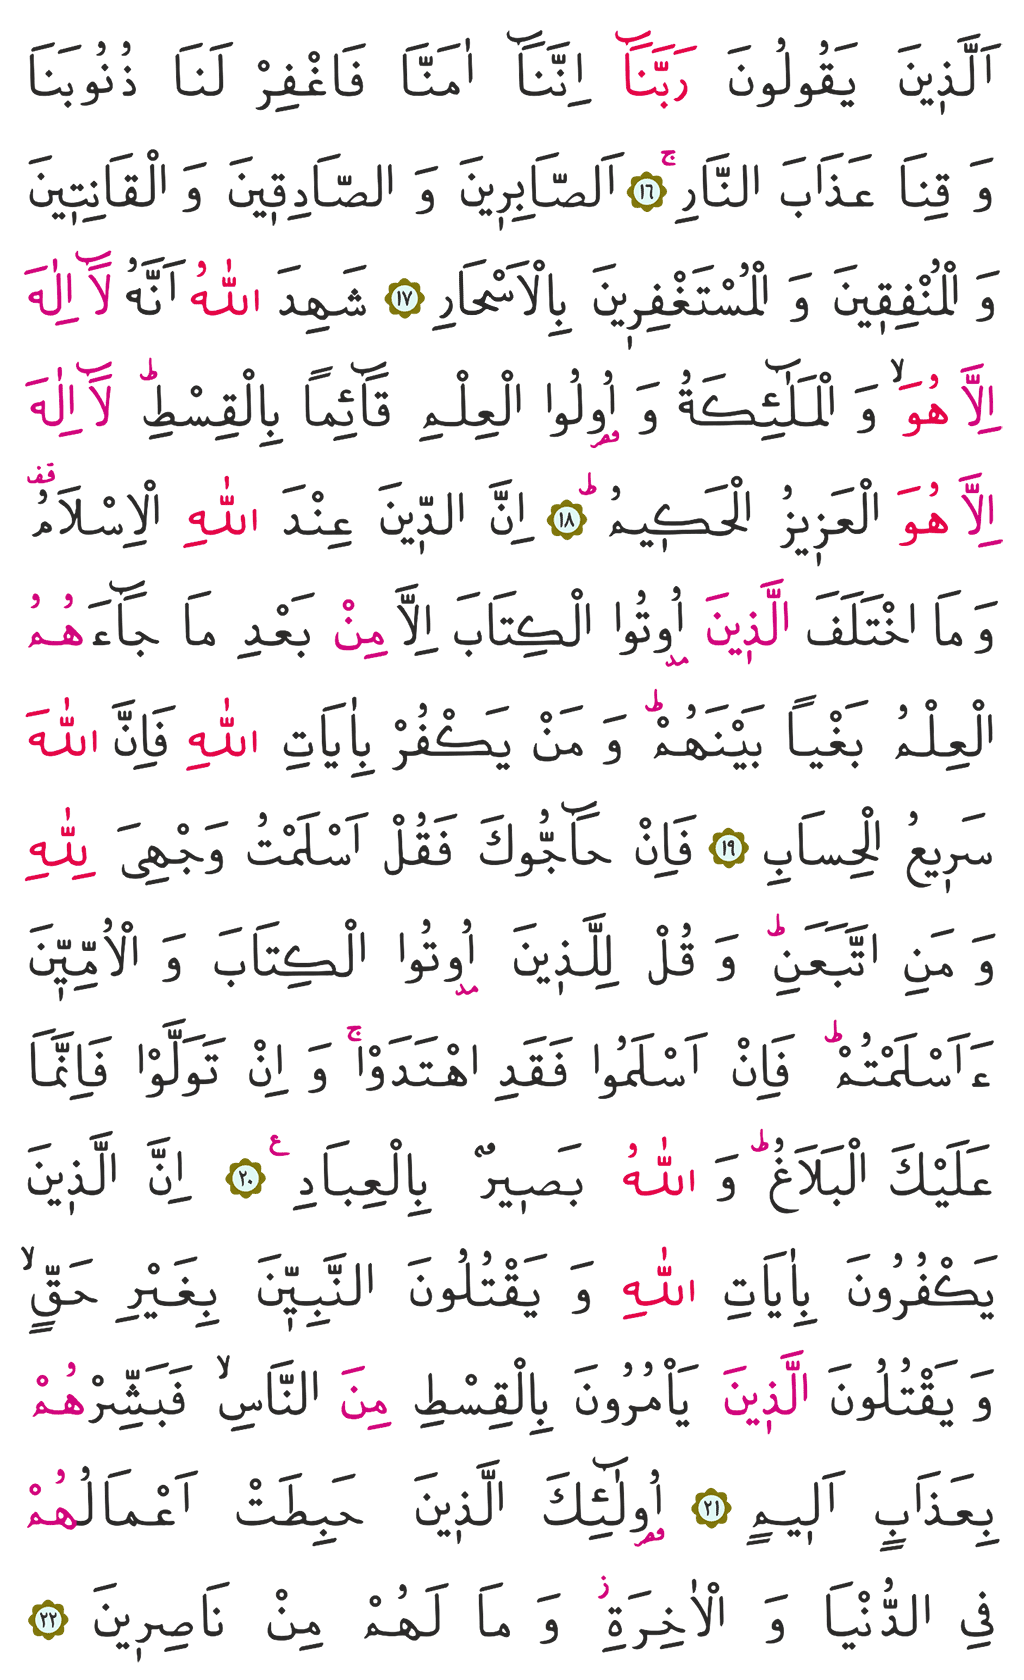 اَلَّذ۪ينَ يَقُولُونَ رَبَّنَٓا اِنَّنَٓا اٰمَنَّا فَاغْفِرْ لَنَا ذُنُوبَنَا
وَ قِنَا عَذَابَ النَّارِۚ ﴿١٦﴾ اَلصَّابِر۪ينَ وَ الصَّادِق۪ينَ وَ الْقَانِت۪ينَ
وَ الْمُنْفِق۪ينَ وَ الْمُسْتَغْفِر۪ينَ بِالْاَسْحَارِ ﴿١٧﴾ شَهِدَ اللّٰهُ اَنَّهُ لَٓا اِلٰهَ
اِلَّا هُوَۙ وَ الْمَلٰٓئِكَةُ وَ اُو۬لُوا الْعِلْمِ قَٓائِمًا بِالْقِسْطِۜ لَٓا اِلٰهَ
اِلَّا هُوَ الْعَز۪يزُ الْحَك۪يمُۜ ﴿١٨﴾ اِنَّ الدّ۪ينَ عِنْدَ اللّٰهِ الْاِسْلَامُ۠ قف
وَ مَا اخْتَلَفَ الَّذ۪ينَ اُو۫تُوا الْكِتَابَ اِلَّا مِنْ بَعْدِ مَا جَٓاءَهُمُ
الْعِلْمُ بَغْيًا بَيْنَهُمْۜ وَ مَنْ يَكْفُرْ بِاٰيَاتِ اللّٰهِ فَاِنَّ اللّٰهَ
سَر۪يعُ الْحِسَابِ ﴿١٩﴾ فَاِنْ حَٓاجُّوكَ فَقُلْ اَسْلَمْتُ وَجْهِىَ لِلّٰهِ
وَ مَنِ اتَّبَعَنِۜ وَ قُلْ لِلَّذ۪ينَ اُو۫تُوا الْكِتَابَ وَ الْاُمِّيّ۪نَ
ءَاَسْلَمْتُمْۜ فَاِنْ اَسْلَمُوا فَقَدِ اهْتَدَوْاۚ وَ اِنْ تَوَلَّوْا فَاِنَّمَا
عَلَيْكَ الْبَلَاغُۜ وَ اللّٰهُ بَص۪يرٌ بِالْعِبَادِ ع ﴿٢٠﴾ اِنَّ الَّذ۪ينَ
يَكْفُرُونَ بِاٰيَاتِ اللّٰهِ وَ يَقْتُلُونَ النَّبِيّ۪نَ بِغَيْرِ حَقٍّۙ
وَ يَقْتُلُونَ الَّذ۪ينَ يَاْمُرُونَ بِالْقِسْطِ مِنَ النَّاسِۙ فَبَشِّرْهُمْ
بِعَذَابٍ اَل۪يمٍ ﴿٢١﴾ اُو۬لٰٓئِكَ الَّذ۪ينَ حَبِطَتْ اَعْمَالُهُمْ
فِي الدُّنْيَا وَ الْاٰخِرَةِۘ وَ مَا لَهُمْ مِنْ نَاصِر۪ينَ ﴿٢٢﴾